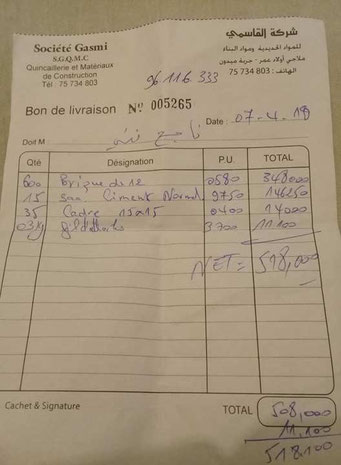 Société Gasmi
S.G.Q.M.C
Quincaillerie et Matériaux
de Construction
Tél : 75 734 803
شركة القاسمي
للمواد الحديدية ومواد البناء
ملاحي أولاد عمر - جربة ميدون
الهاتف : 803 734 75
96 116 333
Bon de livraison Nº 005265
Date : 07-4-18
Doit M : ناجح
Qté Désignation P.U. TOTAL
600 Brique de 12 0580 348000
15 Ciment 9750 146250
35 Cadre 15x15 0400 14000
03 3700 11.100
NET = 518,000
Cachet & Signature
TOTAL 508,000
11,100
518.100